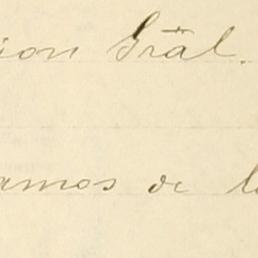 ion Gräl.
amos de l